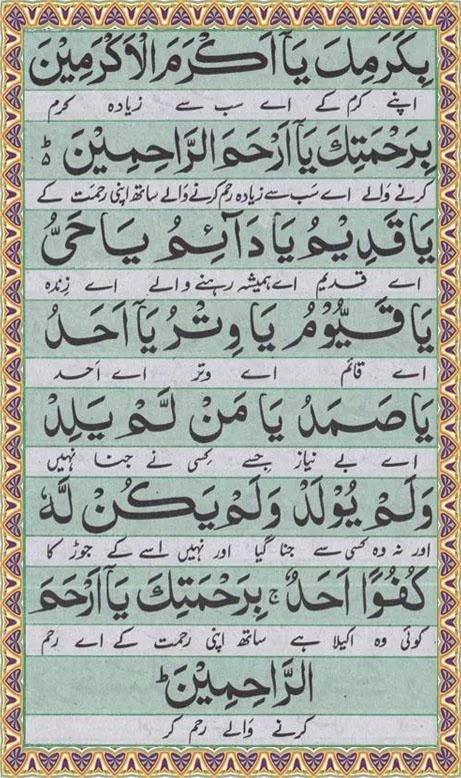 بِكَرَمِكَ يَآ اَكْرَمَ الْاَكْرَمِيْنَ
اپنے کرم کے اے سب سے زیادہ کرم
بِرَحْمَتِكَ يَآ اَرْحَمَ الرَّاحِمِيْنَ ۵ ط
کرنے والے اے سَب سے زیادہ رحم کرنے والے ساتھ اپنی رحمت کے
يَا قَدِيْمُ يَا دَآئِمُ يَا حَىُّ
اے قدیم اے ہمیشہ رہنے والے اے زندہ
يَا قَيُّوْمُ يَا وِتْرُ يَآ اَحَدُ
اے قائم اے وتر اے اَحد
يَا صَمَدُ يَا مَنْ لَّمْ يَلِدْ
اے بے نیاز جسے کِسی نے جنا نہیں
وَلَمْ يُوْلَدْ وَلَمْ يَكُنْ لَّهٗ
اور نہ وہ کسی سے جنا گیا اور نہیں اسے کے جوڑ کا
كُفُوًا اَحَدٌ ج بِرَحْمَتِكَ يَآ اَرْحَمَ
کوئی وہ اکیلا ہے ساتھ اپنی رحمت کے اے رحم
الرَّاحِمِيْنَ ط
کرنے والے رحم کر